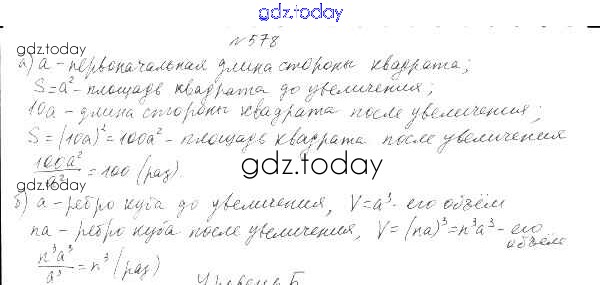 gdz.today
№578
gdz.today
а) a - первоначальная длина стороны квадрата;
S = a² - площадь квадрата до увеличения;
10a - длина стороны квадрата после увеличения;
S = (10a)² = 100a² - площадь квадрата после увеличения
100a²/a² = 100 (раз).
gdz.today
б) a - ребро куба до увеличения, V = a³ - его объём
na - ребро куба после увеличения, V = (na)³ = n³a³ - его объём
n³a³/a³ = n³ (раз)
gdz.today
gdz.today
Уровень Б